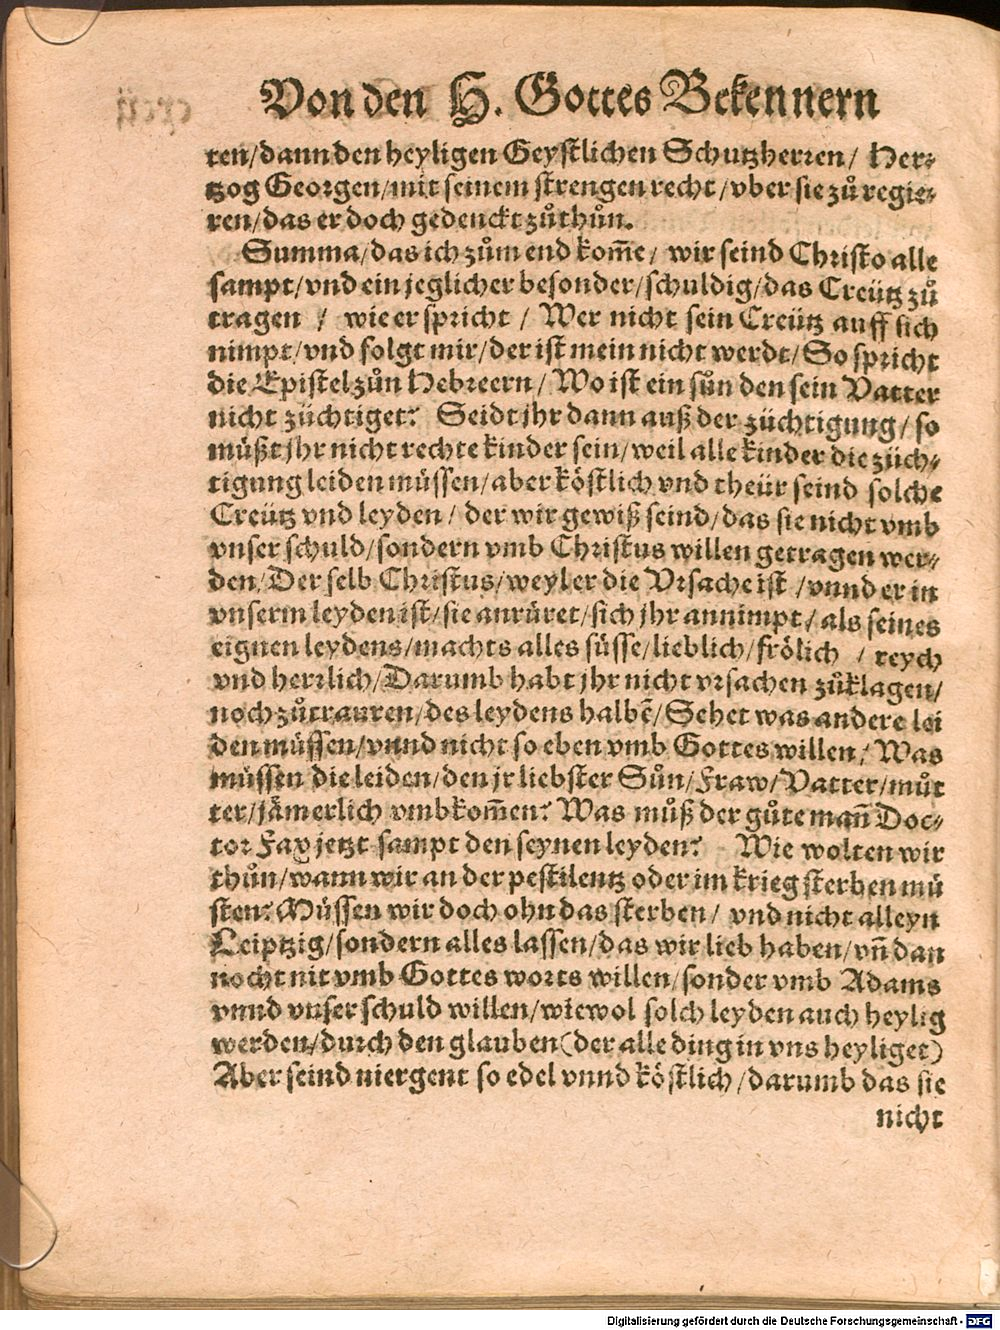 Von den H. Gottes Bekennern
ren/dann den heyligen Geystlichen Schutzherren/ Her-
tzog Georgen/mit seinem strengen recht/vber sie zů regie-
ren/das er doch gedenckt zůthůn.
Summa/das ich zům end kom̄e/ wir seind Christo alle
sampt/vnd ein jeglicher besonder/schuldig/das Creütz zů
tragen / wie er spricht / Wer nicht sein Creütz auff sich
nimpt/vnd folgt mir/der ist mein nicht werdt/So spricht
die Epistel zůn Hebreern/Wo ist ein sůn den sein Vatter
nicht züchtiget? Seidt jhr dann auß der züchtigung/so
müßt jhr nicht rechte kinder sein/weil alle kinder die züch-
tigung leiden müssen/aber köstlich vnd theür seind solche
Creütz vnd leyden/ der wir gewiß seind/das sie nicht vmb
vnser schuld/sondern vmb Christus willen getragen wer-
den/Der selb Christus/weyl er die Vrsache ist /vnnd er in
vnserm leyden ist/sie anrüret/sich jhr annimpt/als seines
eignen leydens/machts alles süsse/lieblich/frölich / reych
vnd herrlich/Darumb habt jhr nicht vrsachen zůklagen/
noch zůtrauren/des leydens halbē/Sehet was andere lei
den müssen/vnnd nicht so eben vmb Gottes willen/Was
müssen die leiden/den jr liebster Sůn/Fraw/Vatter/můt
ter/jämerlich vmbkom̄en? Was můß der gůte man̄ Doc-
tor Fax jetzt sampt den seynen leyden? Wie wolten wir
thůn/wann wir an der pestilentz oder im krieg sterben mü
sten? Müssen wir doch ohn das sterben/ vnd nicht alleyn
Leiptzig/sondern alles lassen/das wir lieb haben/vn̄ dan
nocht nit vmb Gottes worts willen/sonder vmb Adams
vnnd vnser schuld willen/wiewol solch leyden auch heylig
werden/durch den glauben(der alle ding in vns heyliget)
Aber seind niergent so edel vnnd köstlich/darumb das sie
nicht
Digitalisierung gefördert durch die Deutsche Forschungsgemeinschaft - DFG